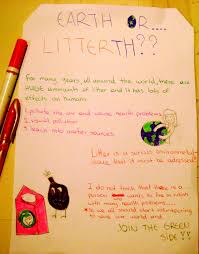 EARTH OR...
LITTERTH??
For many years, all around the world, there are
amounts of litter and it has lots of
effects on humans
1. pollute the air and cause health problems
2. visual pollution
3. leach into water sources
Litter is a serious environmental
issue that it must be adressed
I do not think that there is a
person wants to live in world
with many health problems...
So we all should start volunteering to
save our world and
JOIN THE GREEN
SIDE!!